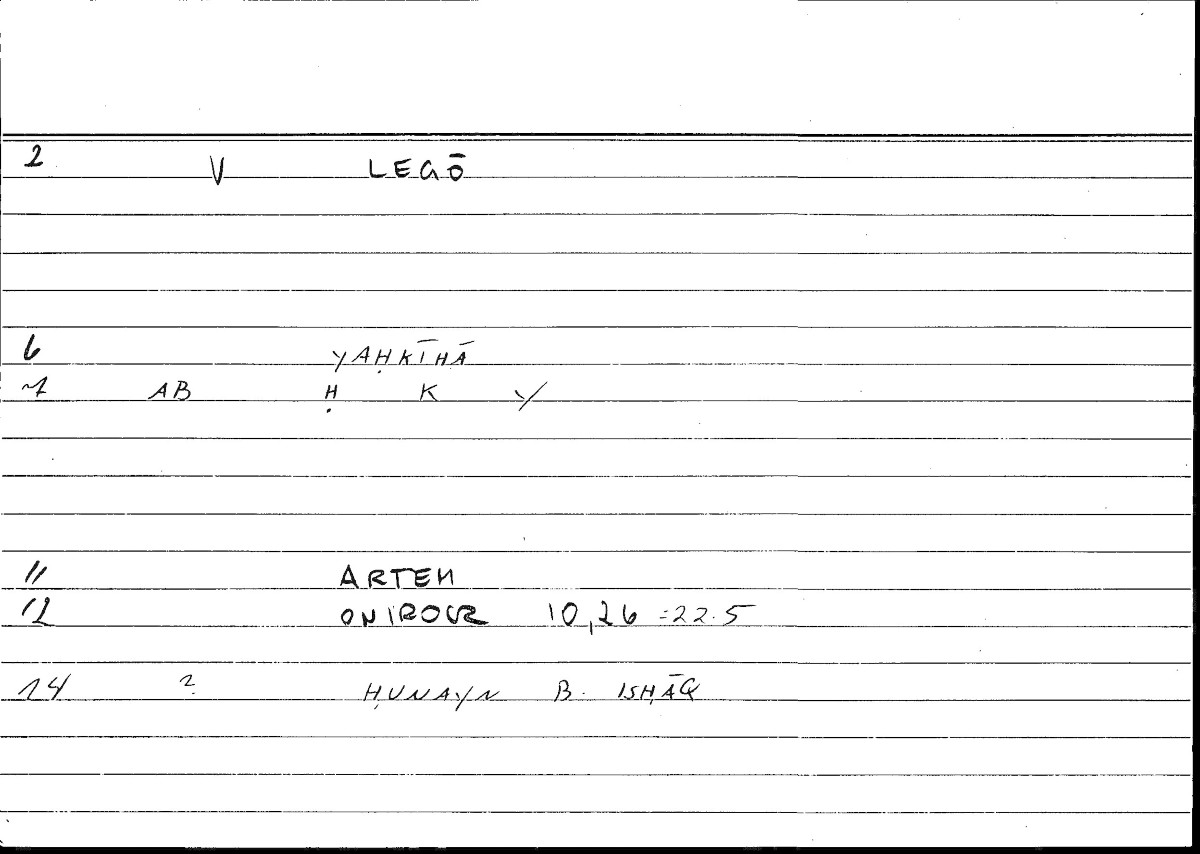 2 V LEGŌ
6 YAḤKĪHĀ
7 AB Ḥ K Y
11 ARTEM
12 ONIROCR 10,26 =22.5
14 ? ḤUNAYN B. ISḤĀQ